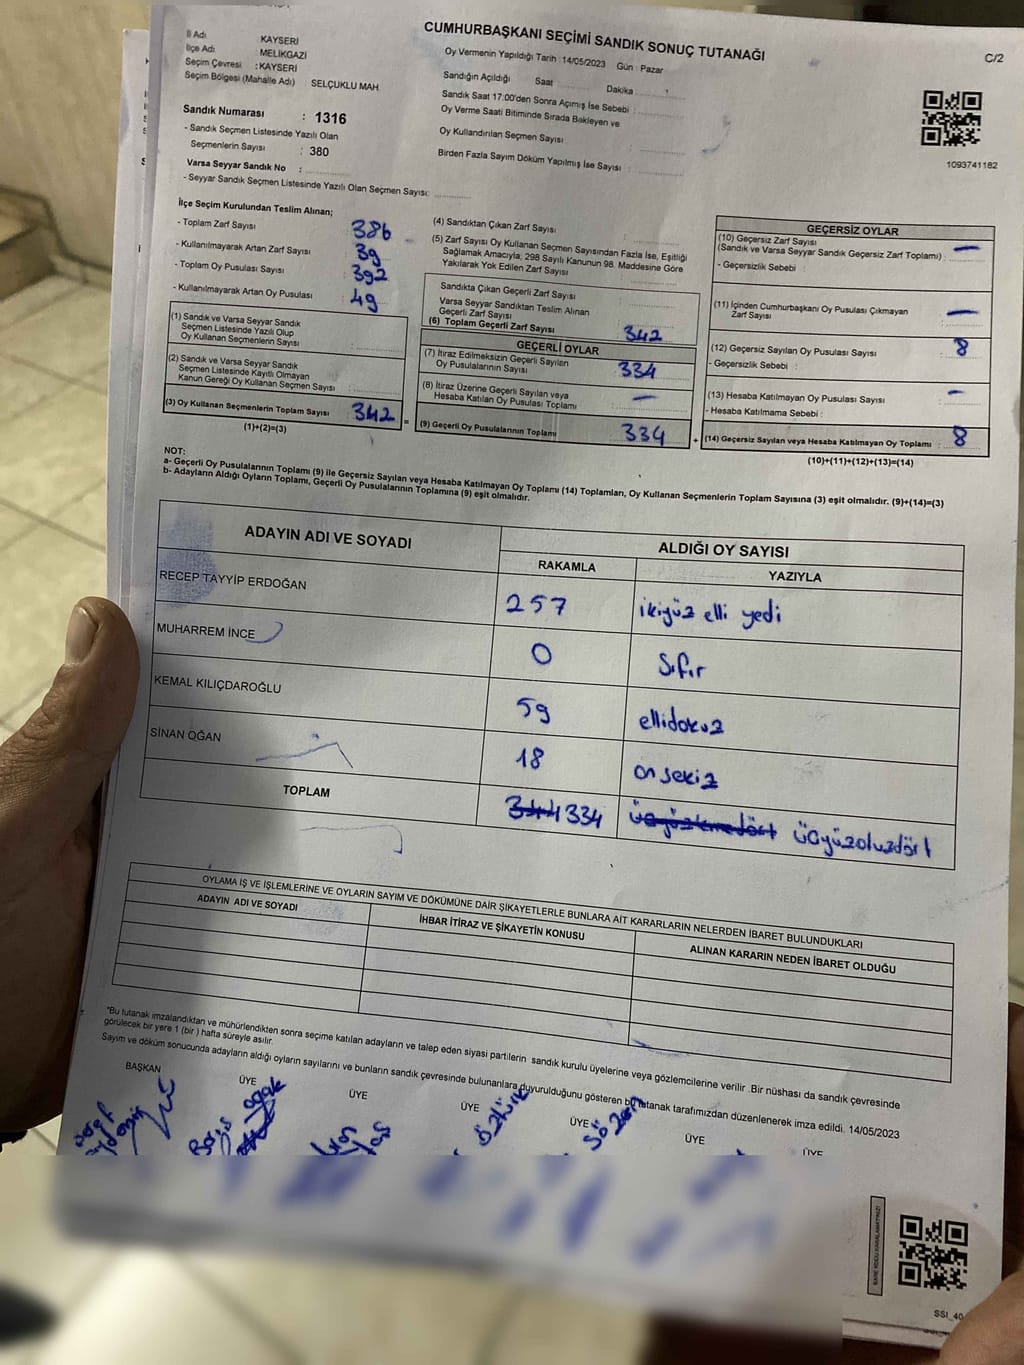 CUMHURBAŞKANI SEÇİMİ SANDIK SONUÇ TUTANAĞI
C/2
İl Adı : KAYSERİ
İlçe Adı : MELİKGAZİ
Seçim Çevresi : KAYSERİ
Seçim Bölgesi (Mahalle Adı) SELÇUKLU MAH
Sandık Numarası : 1316
- Sandık Seçmen Listesinde Yazılı Olan
Seçmenlerin Sayısı : 380
Varsa Seyyar Sandık No :
- Seyyar Sandık Seçmen Listesinde Yazılı Olan Seçmen Sayısı:
Oy Vermenin Yapıldığı Tarih : 14/05/2023 Gün : Pazar
Sandığın Açıldığı Saat Dakika
Sandık Saat 17:00'den Sonra Açımış İse Sebebi :
Oy Verme Saati Bitiminde Sırada Bekleyen ve
Oy Kullandırılan Seçmen Sayısı :
Birden Fazla Sayım Döküm Yapılmış İse Sayısı :
1093741182
İlçe Seçim Kurulundan Teslim Alınan;
- Toplam Zarf Sayısı 386
- Kullanılmayarak Artan Zarf Sayısı : 39
- Toplam Oy Pusulası Sayısı : 392
- Kullanılmayarak Artan Oy Pusulası : 49
(1) Sandık ve Varsa Seyyar Sandık
Seçmen Listesinde Yazılı Olup
Oy Kullanan Seçmenlerin Sayısı :
(2) Sandık ve Varsa Seyyar Sandık
Seçmen Listesinde Kayıtlı Olmayan
Kanun Gereği Oy Kullanan Seçmen Sayısı :
(3) Oy Kullanan Seçmenlerin Toplam Sayısı 342 =
(1)+(2)=(3)
(4) Sandıktan Çıkan Zarf Sayısı
(5) Zarf Sayısı Oy Kullanan Seçmen Sayısından Fazla İse, Eşitliği
Sağlamak Amacıyla; 298 Sayılı Kanunun 98. Maddesine Göre
Yakılarak Yok Edilen Zarf Sayısı
Sandıkta Çıkan Geçerli Zarf Sayısı
Varsa Seyyar Sandıktan Teslim Alınan
Geçerli Zarf Sayısı
(6) Toplam Geçerli Zarf Sayısı 342
GEÇERLİ OYLAR
(7) İtiraz Edilmeksizin Geçerli Sayılan
Oy Pusulalarının Sayısı 334
(8) İtiraz Üzerine Geçerli Sayılan veya
Hesaba Katılan Oy Pusulası Toplamı —
(9) Geçerli Oy Pusulalarının Toplamı 334 +
GEÇERSİZ OYLAR
(10) Geçersiz Zarf Sayısı
(Sandık ve Varsa Seyyar Sandık Geçersiz Zarf Toplamı) : —
- Geçersizlik Sebebi
(11) İçinden Cumhurbaşkanı Oy Pusulası Çıkmayan
Zarf Sayısı —
(12) Geçersiz Sayılan Oy Pusulası Sayısı 8
- Geçersizlik Sebebi :
(13) Hesaba Katılmayan Oy Pusulası Sayısı —
- Hesaba Katılmama Sebebi :
(14) Geçersiz Sayılan veya Hesaba Katılmayan Oy Toplamı : 8
(10)+(11)+(12)+(13)=(14)
NOT:
a- Geçerli Oy Pusulalarının Toplamı (9) ile Geçersiz Sayılan veya Hesaba Katılmayan Oy Toplamı (14) Toplamları, Oy Kullanan Seçmenlerin Toplam Sayısına (3) eşit olmalıdır. (9)+(14)=(3)
b- Adayların Aldığı Oyların Toplamı, Geçerli Oy Pusulalarının Toplamına (9) eşit olmalıdır.
ADAYIN ADI VE SOYADI ALDIĞI OY SAYISI
RAKAMLA YAZIYLA
RECEP TAYYİP ERDOĞAN 257 ikiyüz elli yedi
MUHARREM İNCE 0 Sıfır
KEMAL KILIÇDAROĞLU 59 ellidokuz
SİNAN OĞAN 18 on sekiz
TOPLAM 344 334 üçyüzotuzdört
OYLAMA İŞ VE İŞLEMLERİNE VE OYLARIN SAYIM VE DÖKÜMÜNE DAİR ŞİKAYETLERLE BUNLARA AİT KARARLARIN NELERDEN İBARET BULUNDUKLARI
ADAYIN ADI VE SOYADI İHBAR İTİRAZ VE ŞİKAYETİN KONUSU ALINAN KARARIN NEDEN İBARET OLDUĞU
"Bu tutanak imzalandıktan ve mühürlendikten sonra seçime katılan adayların ve talep eden siyasi partilerin sandık kurulu üyelerine veya gözlemcilerine verilir .Bir nüshası da sandık çevresinde
görülecek bir yere 1 (bir ) hafta süreyle asılır.
Sayım ve döküm sonucunda adayların aldığı oyların sayılarını ve bunların sandık çevresinde bulunanlara duyurulduğunu gösteren bu tutanak tarafımızdan düzenlenerek imza edildi. 14/05/2023
BAŞKAN ÜYE ÜYE ÜYE ÜYE ÜYE ÜYE
KARE KODU KARALAMAYINIZ!
SSI_40